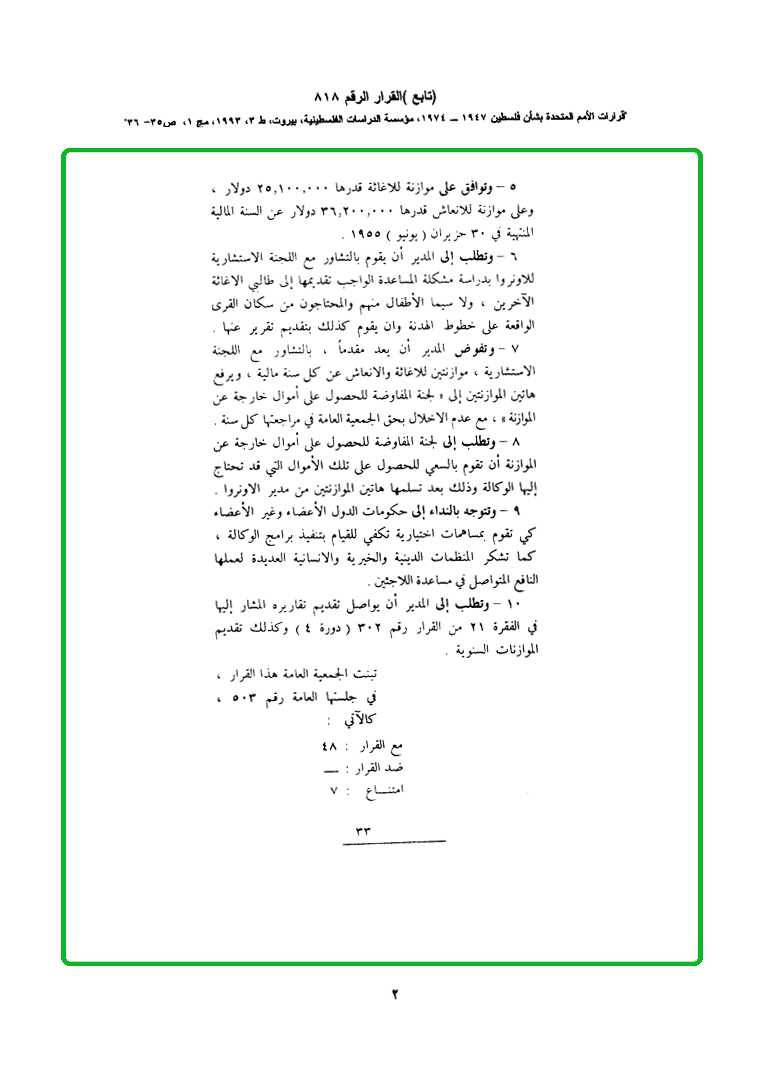 (تابع )القرار الرقم ٨١٨
"قرارات الأمم المتحدة بشأن فلسطين ١٩٤٧ ــ ١٩٧٤، مؤسسة الدراسات الفلسطينية، بيروت، ط ٣، ١٩٩٣، مج ١، ص٣٥- ٣٦"
٥ – وتوافق على موازنة للاغاثة قدرها ٢٥,١٠٠,٠٠٠ دولار ،
وعلى موازنة للانعاش قدرها ٣٦,٢٠٠,٠٠٠ دولار عن السنة المالية
المنتهية في ٣٠ حزيران ( يونيو ) ١٩٥٥ .
٦ – وتطلب إلى المدير أن يقوم بالتشاور مع اللجنة الاستشارية
للاونروا بدراسة مشكلة المساعدة الواجب تقديمها إلى طالبي الاغاثة
الآخرين ، ولا سيما الأطفال منهم والمحتاجون من سكان القرى
الواقعة على خطوط الهدنة وان يقوم كذلك بتقديم تقرير عنها .
٧ – وتفوض المدير أن يعد مقدماً ، بالتشاور مع اللجنة
الاستشارية ، موازنتين للاغاثة والانعاش عن كل سنة مالية ، ويرفع
هاتين الموازنتين إلى « لجنة المفاوضة للحصول على أموال خارجة عن
الموازنة » ، مع عدم الاخلال بحق الجمعية العامة في مراجعتها كل سنة .
٨ – وتطلب إلى لجنة المفاوضة للحصول على أموال خارجة عن
الموازنة أن تقوم بالسعي للحصول على تلك الأموال التي قد تحتاج
إليها الوكالة وذلك بعد تسلمها هاتين الموازنتين من مدير الاونروا .
٩ – وتتوجه بالنداء إلى حكومات الدول الأعضاء وغير الأعضاء
كي تقوم بمساهمات اختيارية تكفي للقيام بتنفيذ برامج الوكالة ،
كما تشكر المنظمات الدينية والخيرية والانسانية العديدة لعملها
النافع المتواصل في مساعدة اللاجئين .
١٠ – وتطلب إلى المدير أن يواصل تقديم تقاريره المشار إليها
في الفقرة ٢١ من القرار رقم ٣٠٢ ( دورة ٤ ) وكذلك تقديم
الموازنات السنوية .
تبنت الجمعية العامة هذا القرار ،
في جلستها العامة رقم ٥٠٣ ،
كالآتي :
مع القرار : ٤٨
ضد القرار : —
امتنـــاع : ٧
٣٣
٢